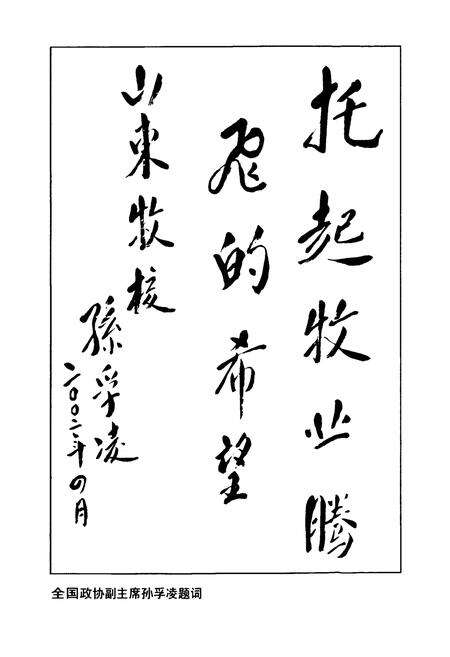 托起牧业腾
飞的希望
山東牧校
孫孚凌
二〇〇二年四月
全国政协副主席孙孚凌题词